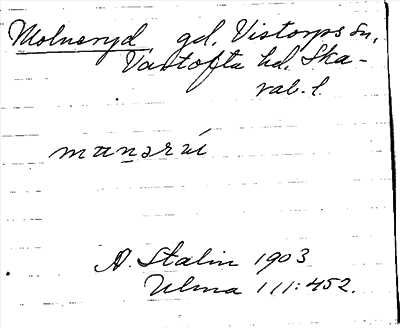 Molneryd, gd, Vistorps sn,
Vartofta hd. Ska-
rab. l.
A. Stalin 1903
Ulma 111:452.